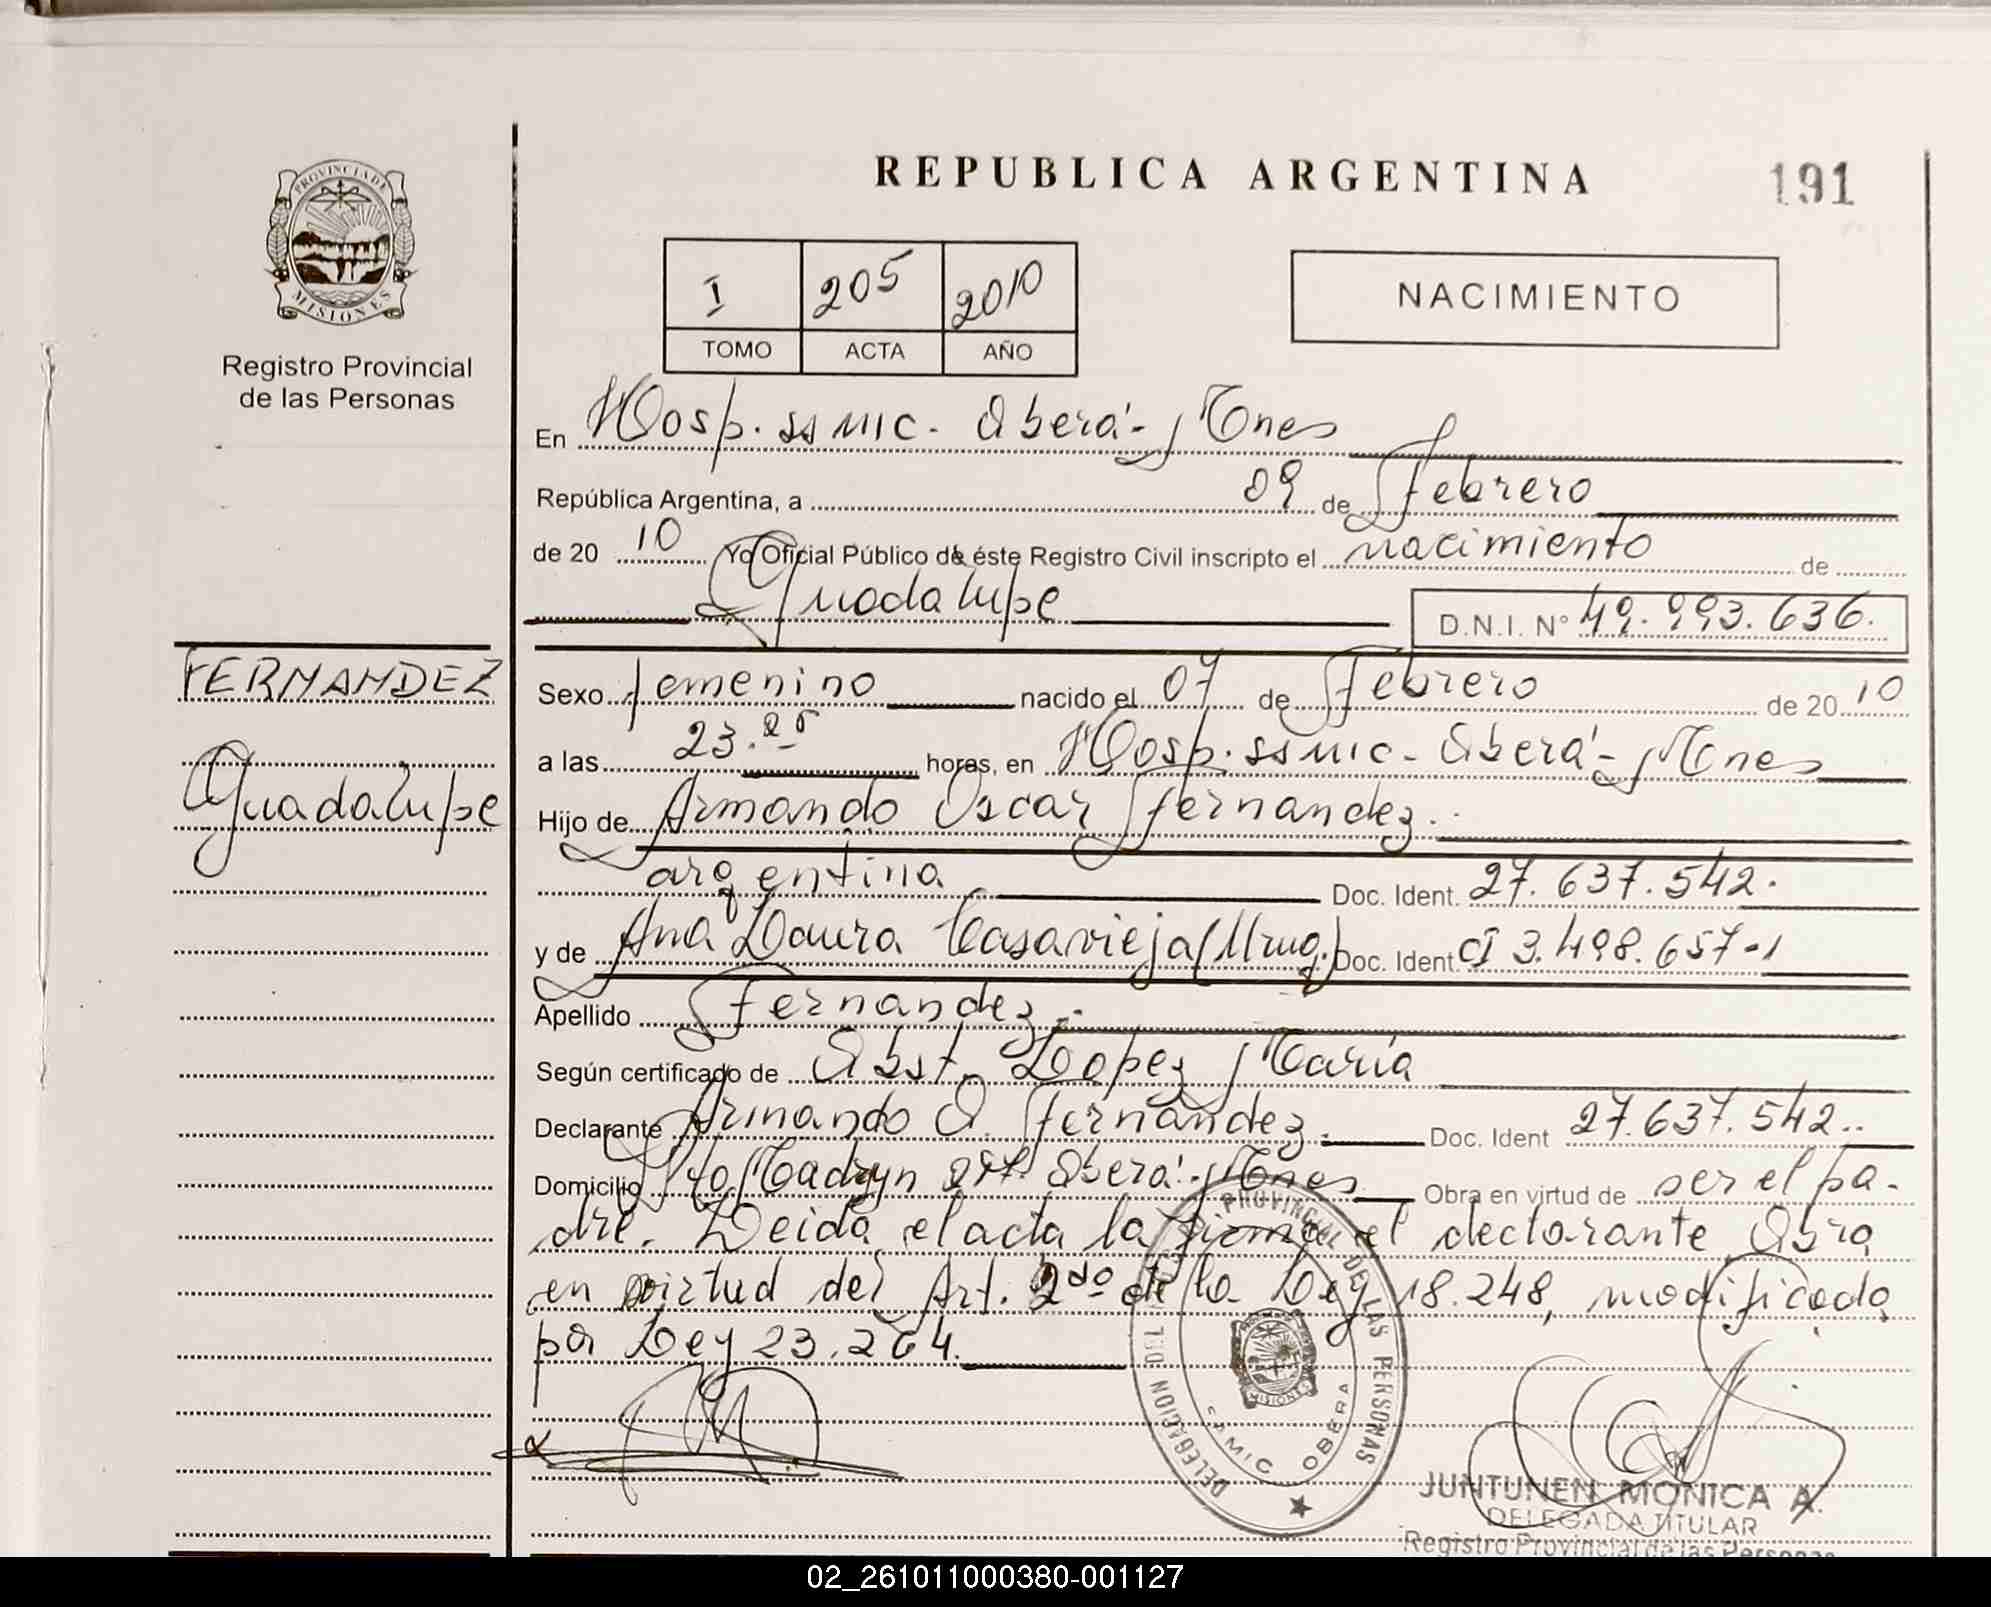 REPUBLICA ARGENTINA
191
PROVINCIA DE MISIONES
Registro Provincial
de las Personas
I 205 2010
TOMO ACTA AÑO
NACIMIENTO
En Hosp. SAMIC. Oberá - Mnes
República Argentina, a 09 de Febrero
de 2010 Yo Oficial Público de éste Registro Civil inscripto el nacimiento de
Guadalupe
D.N.I. N° 49.993.636.
FERNANDEZ
Guadalupe
Sexo femenino nacido el 07 de Febrero de 2010
a las 23.25 horas, en Hosp. SAMIC - Oberá - Mnes
Hijo de Armando Oscar Fernandez.
argentina Doc. Ident. 27.637.542.
y de Ana Laura Casavieja (Urug.) Doc. Ident. CI 3.498.657-1
Apellido Fernandez.
Según certificado de Obst. Lopez María
Declarante Armando O. Fernández. Doc. Ident 27.637.542.
Domicilio Pto Madryn Oberá - Mnes Obra en virtud de ser el pa-
dre. Leida el acta la firma el declarante Obra
en virtud del Art. 2do de la Ley 18.248, modificada
por Ley 23.264.
DELEGACION DEL PROVINCIAL DE LAS PERSONAS
SAMIC OBERA
MISIONES
JUNTUNEN MONICA A.
DELEGADA TITULAR
Registro Provincial de las Personas
02_261011000380-001127